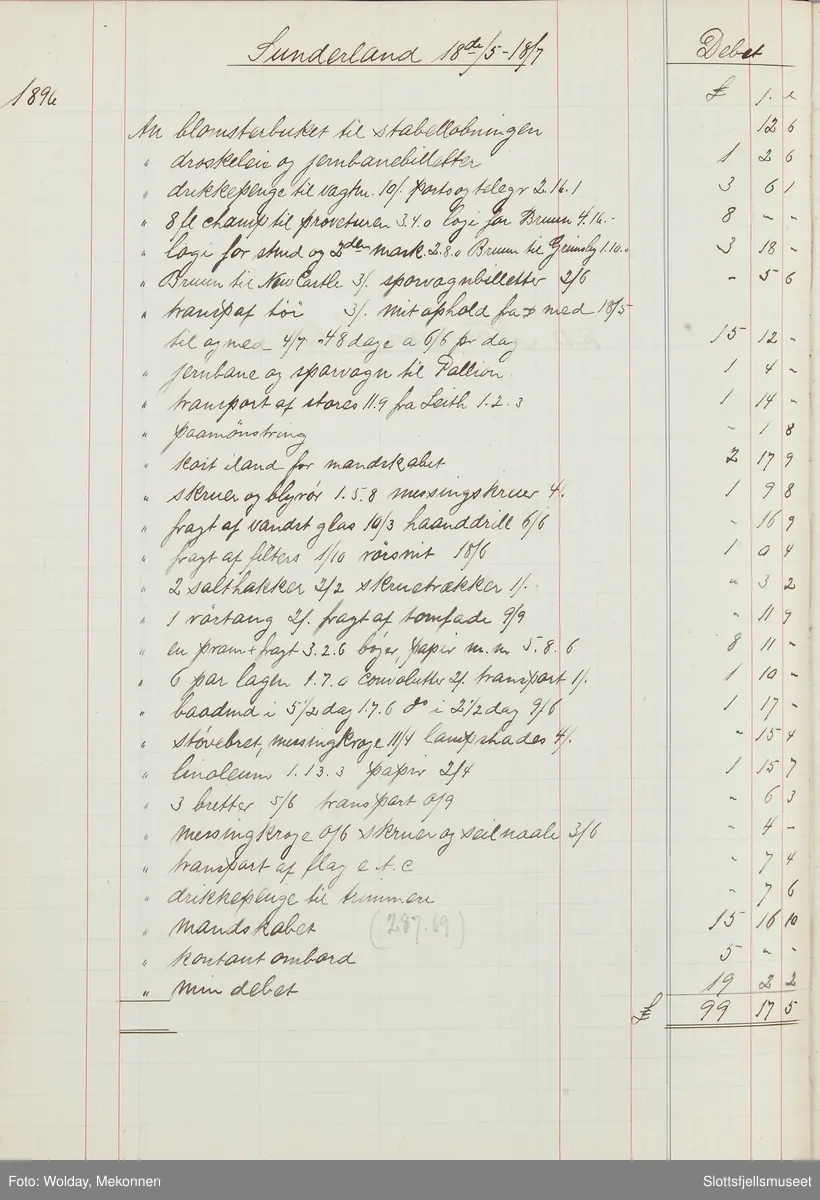 Sunderland 18de/5-18/7 Debet
1896 £ s. d.
An blomsterbuket til stabelløbningen 12 6
" droskeleie og jernbanebilletter 1 2 6
" drikkepenge til vagtm. 10/. porto og telegr 2.16.1 3 6 1
" 8 fl champ til prøveturen 3.4.0 logi for Bruun 4.16.- 8 - -
" logi for stud og 2den mask. 2.8.0 Bruun til Grimsby 1.10.0 3 18 -
" Bruun til New Castle 3/. sporvognbilletter 2/6 - 5 6
" transp af tøi 3/. mit ophold fra & med 18/5
til og med 4/7 - 48 dage a 6/6 pr dag 15 12 -
" jernbane og sporvogn til Pallion. 1 4 -
" transport af stores 11.9 fra Leith 1.2.3 1 14 -
" paamönstring - 1 8
" kost iland for mandskabet 2 17 9
" skruer og blyrör 1.5.8 messingskruer 4/. 1 9 8
" fragt af vandst glas 10/3 haanddrill 6/6 " 16 9
" fragt af filters 1/10 rörsnit 18/6 1 0 4
" 2 salthakker 2/2 skruetrækker 1/.- " 3 2
" 1 rörtang 2/. fragt af tomfade 9/9 " 11 9
" en pram + fragt 3.2.6 böger, papir m.m 5.8.6 8 11 -
" 6 par lagen 1.7.0 convolutter 2/. transport 1/. 1 10 -
" baadmd i 5 1/2 dag 1.7.6 do i 2 1/2 dag 9/6 1 17 -
" stövebret, messingkroge 11/4 lampshades 4/. " 15 4
" linoleum 1.13.3 papir 2/4 1 15 7
" 3 bretter 5/6 transport 0/9 - 6 3
" messingkroge 0/6 skruer og seilnaale 3/6 " 4 -
" transport af flag e.t.c " 7 4
" drikkepenge til trimmere " 7 6
" mandskabet (287.69) 15 16 10
" kontant ombord 5 " -
" min debet 19 2 2
£ 99 17 5
Foto: Wolday, Mekonnen Slottsfjellsmuseet